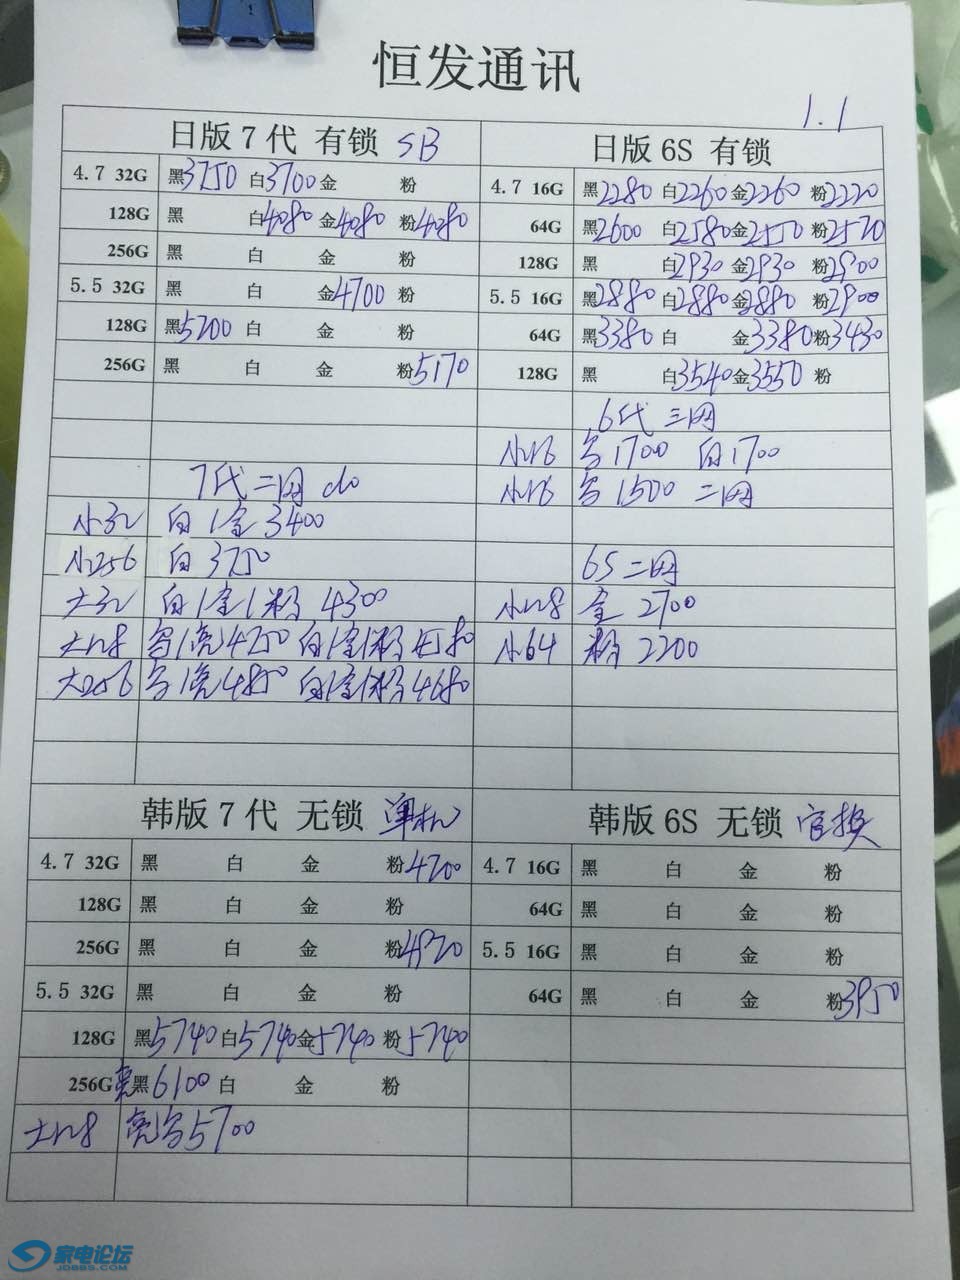 恒发通讯
1.1
日版7代 有锁 SB
4.7 32G 黑3750 白3700 金 粉
128G 黑 白4080 金4080 粉4080
256G 黑 白 金 粉
5.5 32G 黑 白 金4700 粉
128G 黑5200 白 金 粉
256G 黑 白 金 粉5170
7代二网 do
小32 白/金3400
小256 白3750
大32 白/金/粉 4300
大128 黑/亮4750 白/金/粉
大256 黑/亮4850 白/金/粉4680
日版6S 有锁
4.7 16G 黑2280 白2260 金2260 粉2220
64G 黑2600 白2580 金2550 粉2570
128G 黑 白2930 金2930 粉2900
5.5 16G 黑2880 白2880 金2880 粉2900
64G 黑3380 白 金3380 粉3430
128G 黑 白3540 金3550 粉
6代 三网
小16 黑1700 白1700
小16 黑1500 二网
6S二网
小128 金2700
小64 粉2200
韩版7代 无锁 单机
4.7 32G 黑 白 金 粉4200
128G 黑 白 金 粉
256G 黑 白 金 粉4920
5.5 32G 黑 白 金 粉
128G 黑5740 白5740 金5740 粉5740
256G 亮黑6100 白 金 粉
大128 亮黑5700
韩版6S 无锁 官换
4.7 16G 黑 白 金 粉
64G 黑 白 金 粉
5.5 16G 黑 白 金 粉
64G 黑 白 金 粉3950
家电论坛
JDBBS.COM